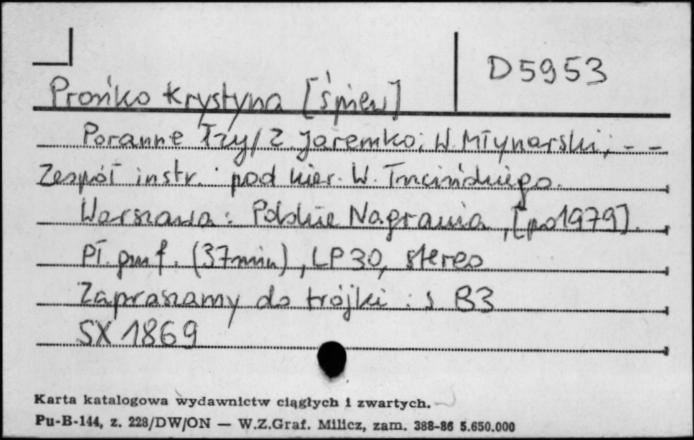 D5953
Prońko Krystyna [śpiew]
Poranne łzy / Z. Jaremko; W. Młynarski; - -
Zespół instr. pod kier. W. Trzcińskiego.
Warszawa: Polskie Nagrania, [po 1979].
Pł. gmf. (37 min), LP 30, stereo
Zapraszamy do trójki: s B3
SX 1869
Karta katalogowa wydawnictw ciągłych i zwartych.
Pu-B-144, z. 228/DW/ON — W.Z.Graf. Milicz, zam. 388-86 5.650.000